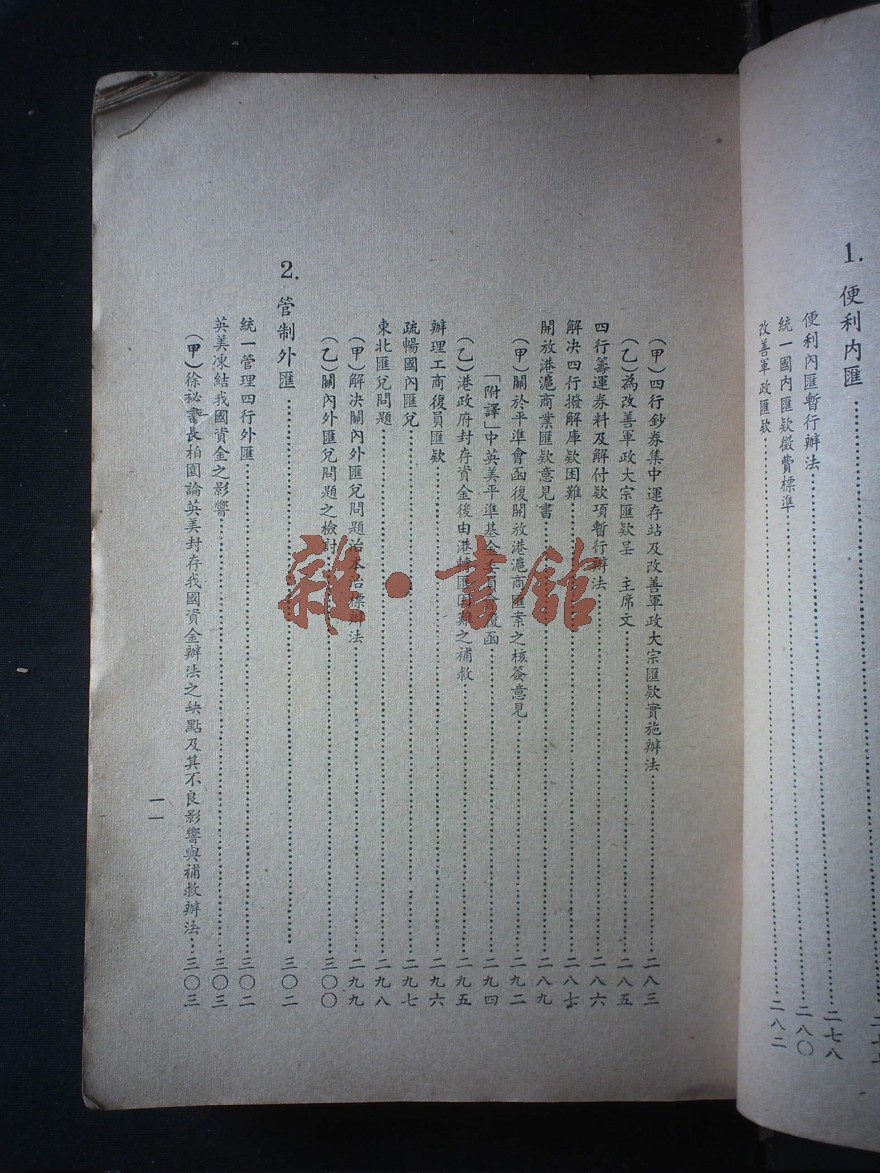 1. 便利內匯
便利內匯暫行辦法 二七八
統一國內匯欵徵費標準 二八〇
改善軍政匯欵 二八二
(甲)四行鈔券集中運存站及改善軍政大宗匯欵實施辦法 二八三
(乙)爲改善軍政大宗匯欵呈 主席文 二八五
四行籌運券料及解付欵項暫行辦法 二八六
解决四行撥解庫欵困難 二八七
開放港滬商業匯欵意見書 二八九
(甲)關於平準會函復開放港滬商匯案之核簽意見 二九二
「附譯」中英美平準基金委員會覆函 二九四
(乙)港政府封存資金後由港轉匯困難之補救 二九五
辦理工商復員匯欵 二九六
疏暢國內匯兌 二九七
東北匯兌問題 二九八
(甲)解决關內外匯兌問題治本治標辦法 二九九
(乙)關內外匯兌問題之檢討 三〇〇
2. 管制外匯 三〇二
統一管理四行外匯 三〇二
英美凍結我國資金之影響 三〇三
(甲)徐祕書長柏園論英美封存我國資金辦法之缺點及其不良影響與補救辦法 三〇三
一一
雜·書館